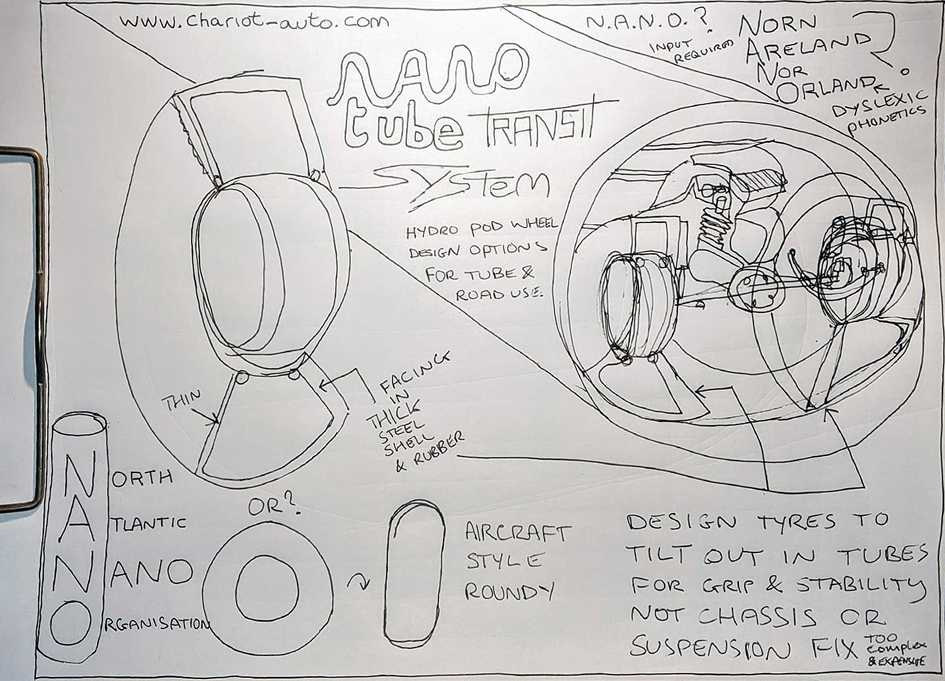 www.chariot-auto.com
N.A.N.O.?
INPUT
REQUIRED
NORN
ARELAND
NOR
ORLAND
?
DYSLEXIC
PHONETICS
NANO
tube TRANSIT
SYSTEM
HYDRO POD WHEEL
DESIGN OPTIONS
FOR TUBE &
ROAD USE.
THIN
FACING
IN
THICK
STEEL
SHELL
& RUBBER
NORTH
ATLANTIC
NANO
ORGANISATION
OR?
AIRCRAFT
STYLE
ROUNDY
DESIGN TYRES TO
TILT OUT IN TUBES
FOR GRIP & STABILITY
NOT CHASSIS OR
SUSPENSION FIX TOO
COMPLEX
& EXPENSIVE